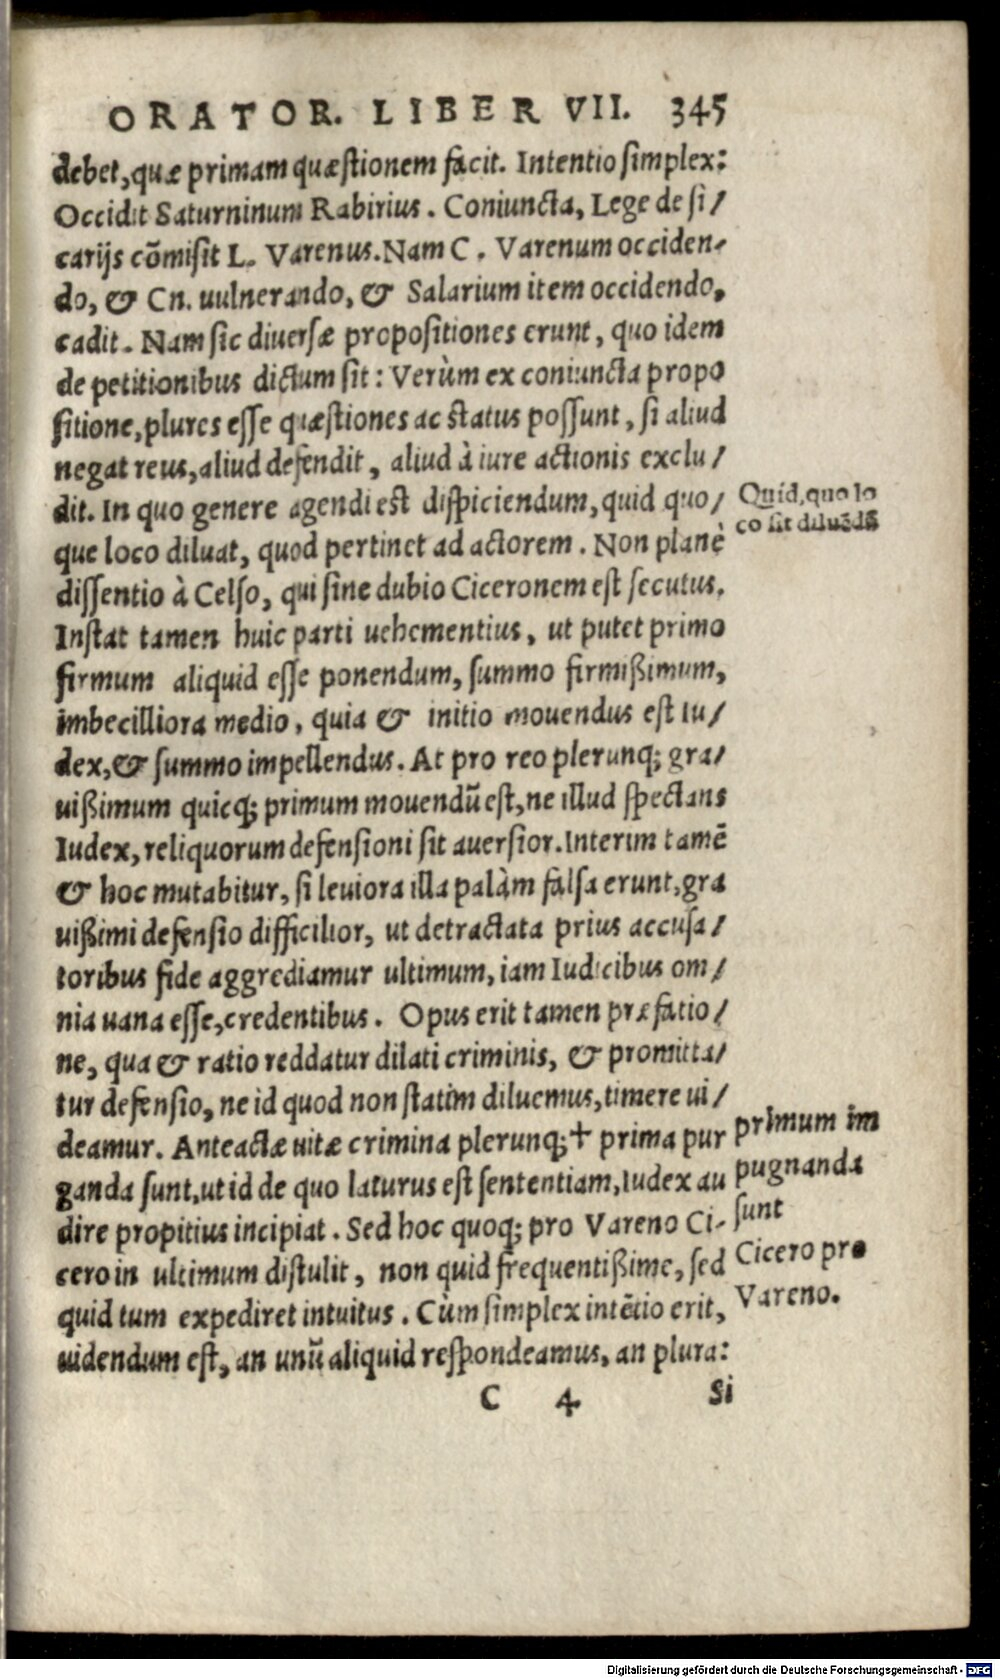 ORATOR. LIBER VII. 345
debet, quæ primam quæstionem facit. Intentio simplex:
Occidit Saturninum Rabirius. Coniuncta, Lege de si/
carijs cōmisit L. Varenus. Nam C. Varenum occiden-
do, & Cn. uulnerando, & Salarium item occidendo,
cadit. Nam sic diuersæ propositiones erunt, quo idem
de petitionibus dictum sit: Verùm ex coniuncta propo
sitione, plures esse quæstiones ac status possunt, si aliud
negat reus, aliud defendit, aliud à iure actionis exclu/
dit. In quo genere agendi est dispiciendum, quid quo/
que loco diluat, quod pertinet ad actorem. Non planè
dissentio à Celso, qui sine dubio Ciceronem est secutus.
Instat tamen huic parti uehementius, ut putet primo
firmum aliquid esse ponendum, summo firmißimum,
imbecilliora medio, quia & initio mouendus est Iu/
dex, & summo impellendus. At pro reo plerunq; gra/
uißimum quicq; primum mouendū est, ne illud spectans
Iudex, reliquorum defensioni sit auersior. Interim tamē
& hoc mutabitur, si leuiora illa palàm falsa erunt, gra
uißimi defensio difficilior, ut detractata prius accusa/
toribus fide aggrediamur ultimum, iam Iudicibus om/
nia uana esse, credentibus. Opus erit tamen præfatio/
ne, qua & ratio reddatur dilati criminis, & promitta/
tur defensio, ne id quod non statim diluemus, timere ui/
deamur. Anteactæ uitæ crimina plerunq; + prima pur
ganda sunt, ut id de quo laturus est sententiam, Iudex au
dire propitius incipiat. Sed hoc quoq; pro Vareno Ci-
cero in ultimum distulit, non quid frequentißime, sed
quid tum expediret intuitus. Cùm simplex intētio erit,
uidendum est, an unū aliquid respondeamus, an plura:
C 4 Si
Quid, quo lo
co sit diluēdū
primum im
pugnanda
sunt
Cicero pro
Vareno.
Digitalisierung gefördert durch die Deutsche Forschungsgemeinschaft - DFG